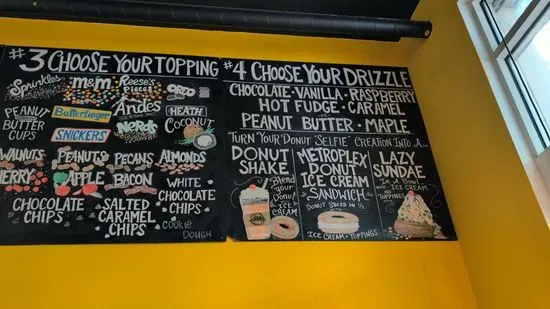 #3 CHOOSE YOUR TOPPING
Sprinkles m&m Reese's Pieces OREO
PEANUT BUTTER CUPS
Butterfinger
SNICKERS
Andes
HEATH
nerds
COCONUT
WALNUTS PEANUTS PECANS ALMONDS
CHERRY APPLE BACON
WHITE CHOCOLATE CHIPS
CHOCOLATE CHIPS
SALTED CARAMEL CHIPS
COOKIE DOUGH
#4 CHOOSE YOUR DRIZZLE
CHOCOLATE · VANILLA · RASPBERRY
HOT FUDGE · CARAMEL
PEANUT BUTTER · MAPLE
TURN YOUR DONUT 'SELFIE' CREATION INTO A...
DONUT SHAKE
Blend your Donut with ICE CREAM
METROPLEX DONUT ICE CREAM SANDWICH
DONUT SLICED IN ½ WITH
ICE CREAM + TOPPINGS
LAZY SUNDAE
IN A BOWL WITH ICE CREAM AND TOPPINGS